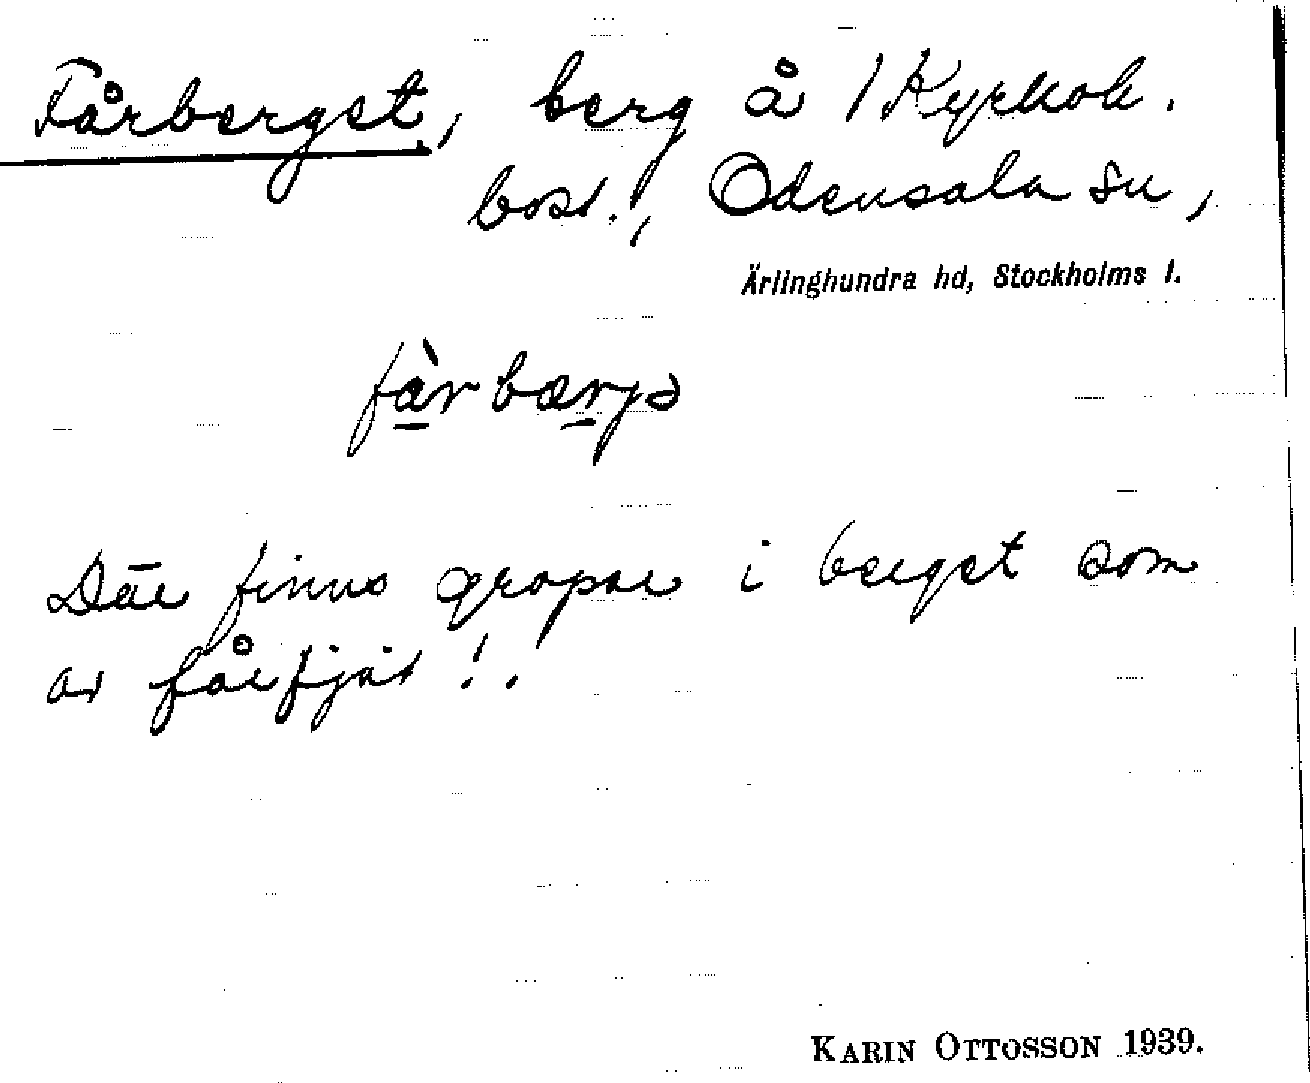 Fårberget, berg å 1 Kyrkob.
bost., Odensala sn,
Ärlinghundra hd, Stockholms l.
fàrbærjə
Där finns gropar i berget som
av fårfjät!.
KARIN OTTOSSON 1939.